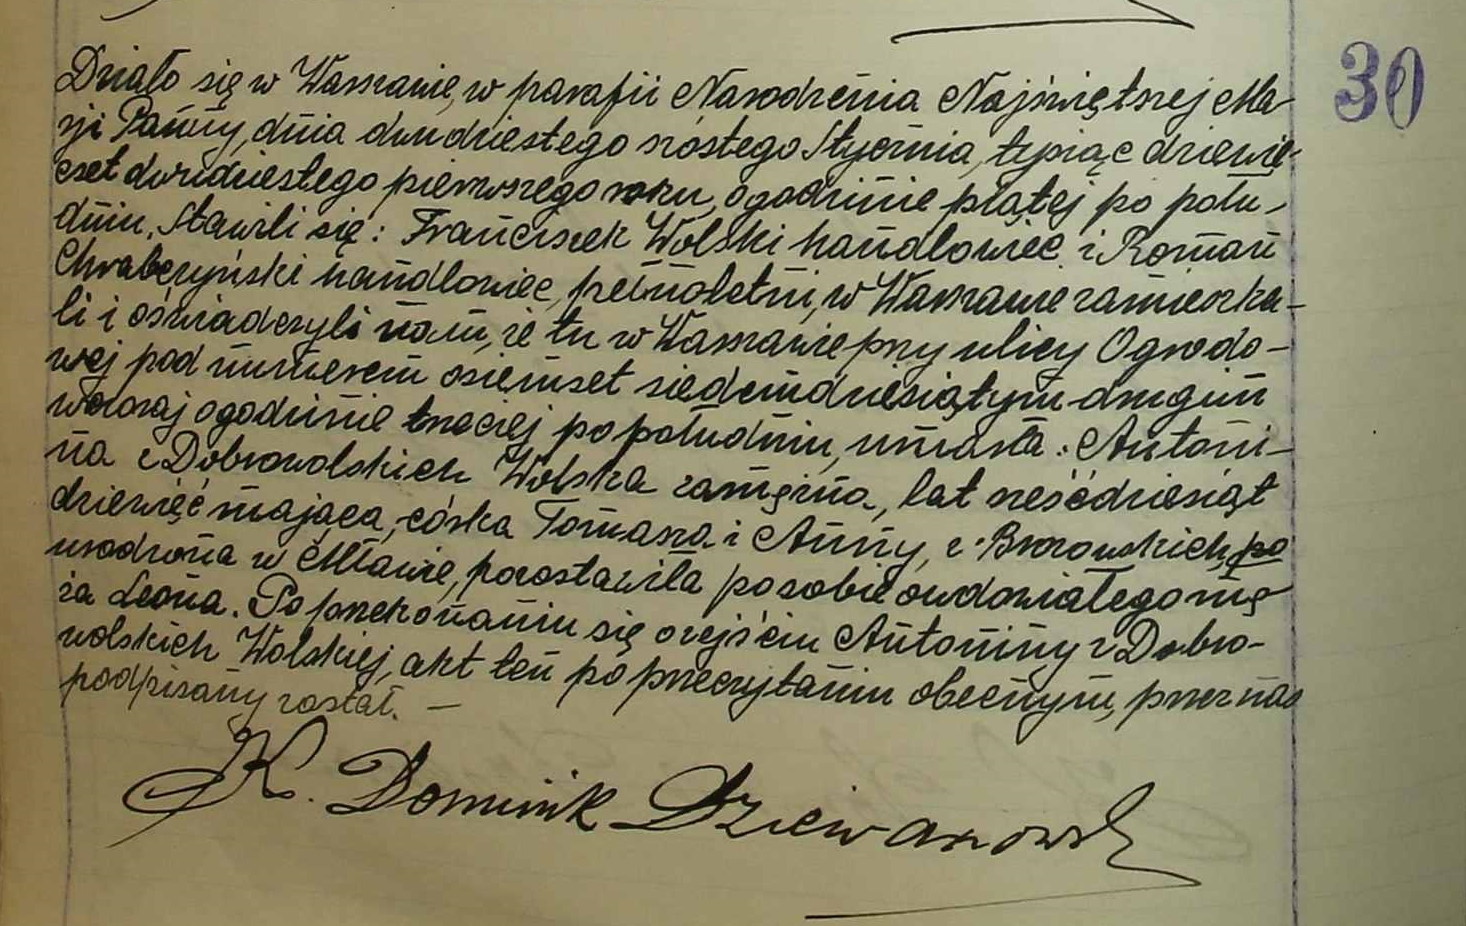 30
Działo się w Warszawie, w parafii Narodzenia Najświętszej Ma-
ryi Panny, dnia dwudziestego szóstego Stycznia, tysiąc dziewię-
ćset dwudziestego pierwszego roku, o godzinie piątej po połu-
dniu. Stawili się: Franciszek Wolski handlowiec i Roman
Chrabczyński handlowiec, pełnoletni, w Warszawie zamieszka-
li i oświadczyli nam, że tu w Warszawie przy ulicy Ogrodo-
wej pod numerem osiemset siedemdziesiątym drugim
wczoraj o godzinie trzeciej po południu, umarła: Antoni-
na z Dobrowolskich Wolska zamężna, lat sześćdziesiąt
dziewięć mająca, córka Tomasza i Anny, z Brzozowskich, po
urodzona w Mławie, pozostawiła po sobie owdowiałego mę-
ża Leona. Po przekonaniu się o zejściu Antoniny z Dobro-
wolskich Wolskiej, akt ten po przeczytaniu obecnym, przez nas
podpisany został. —
K. Dominik Dziewanowski